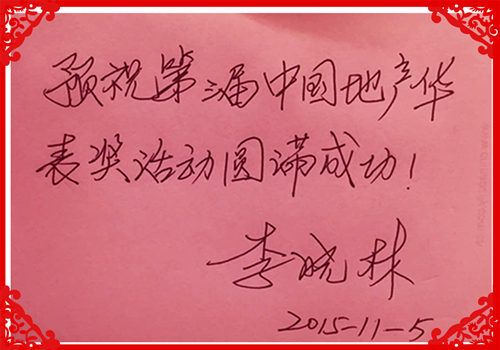 预祝第三届中国地产华
表奖活动圆满成功!
李晓林
2015-11-5